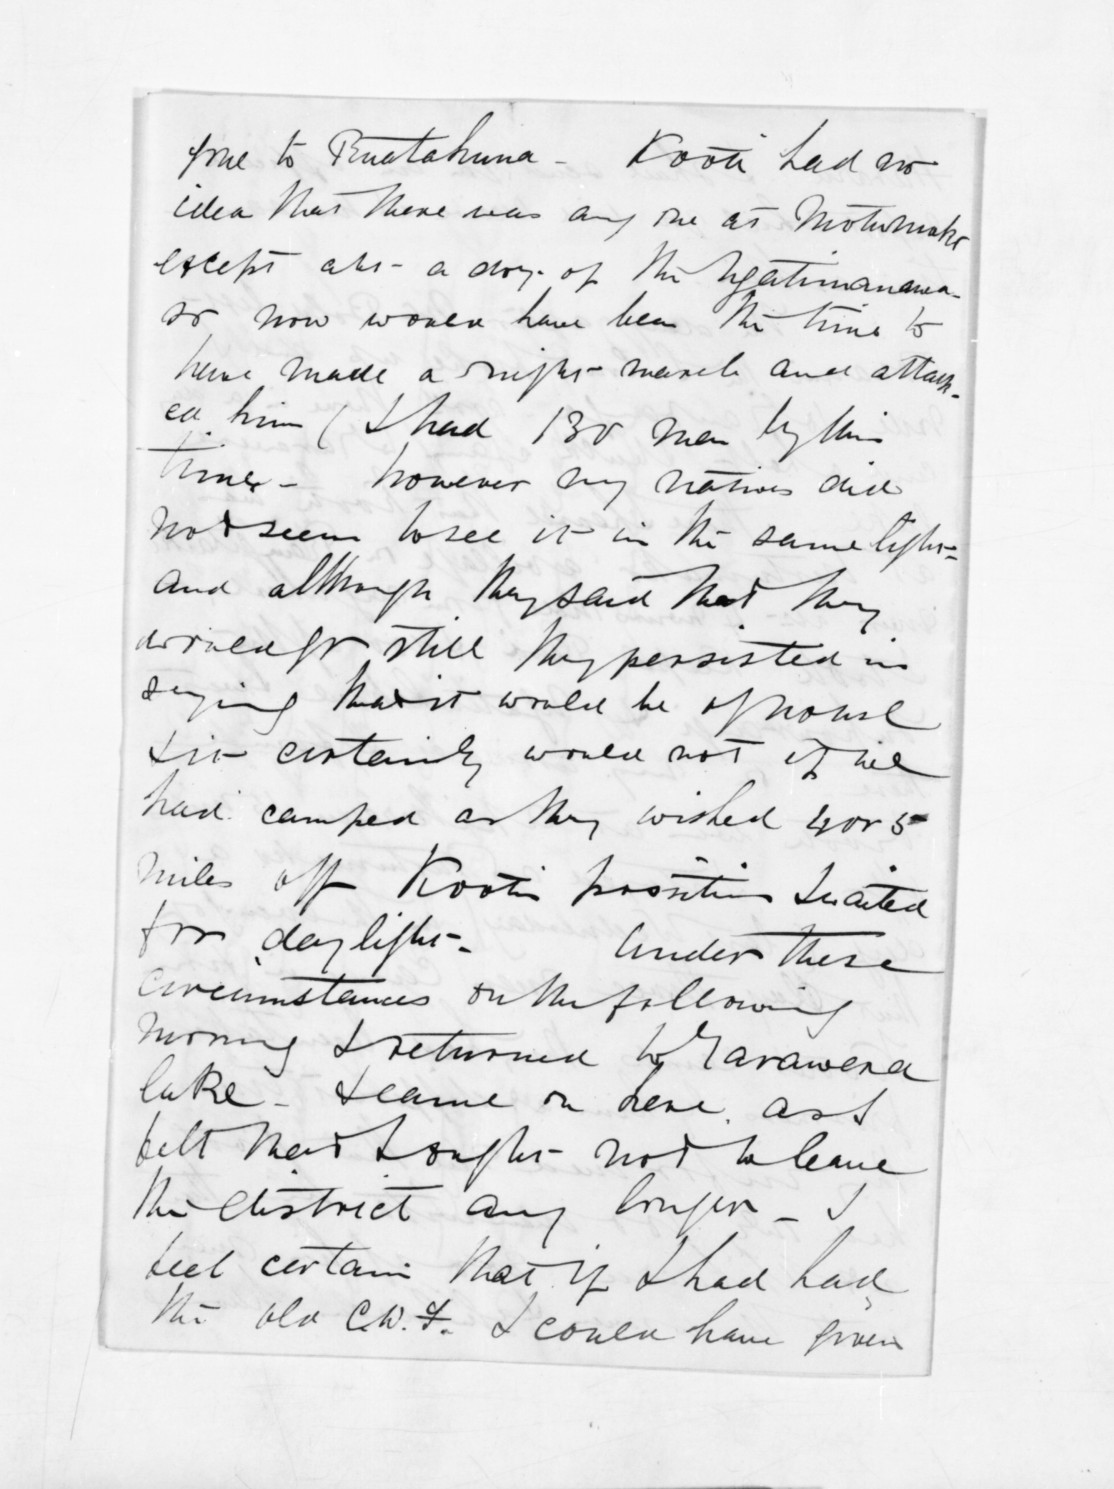 gone to Ruatahuna - Kooti had no
idea that there was any one at Motumako
except abt - a doz. of the Ngatimanawa -
so now would have been the time to
have made a night march and attack-
ed him (I had 130 men by this
time - however my natives did
not seem to see it in the same light -
and although they said that they
would go still they persisted in
saying that it would be of no use
& it certainly would not if we
had camped as they wished 4 or 5
miles off Kootis position & waited
for daylight - Under these
circumstances on the following
morning I returned to Tarawera
lake - I came on here as I
felt that I ought not to leave
the district any longer - I
feel certain that if I had had
the old C.W.F. I could have given